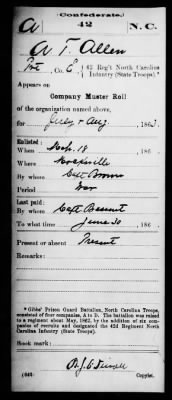 Confederate.
A 42 N.C.
A T. Allen
Pvt, Co. C, 42 Reg't North Carolina
Infantry (State Troops).*
Appears on
Company Muster Roll
of the organization named above,
for July & Aug, 186
Enlisted:
When 18, 186
Where
By whom Capt
Period War
Last paid:
By whom Capt
To what time June 30, 186
Present or absent Present
Remarks:
*Gibbs' Prison Guard Battalion, North Carolina Troops,
consisted of four companies, A to D. The battalion was raised
to a regiment about May, 1862, by the addition of six
companies of recruits and designated the 42d Regiment North
Carolina Infantry (State Troops).
Book mark:
(642) Copyist.